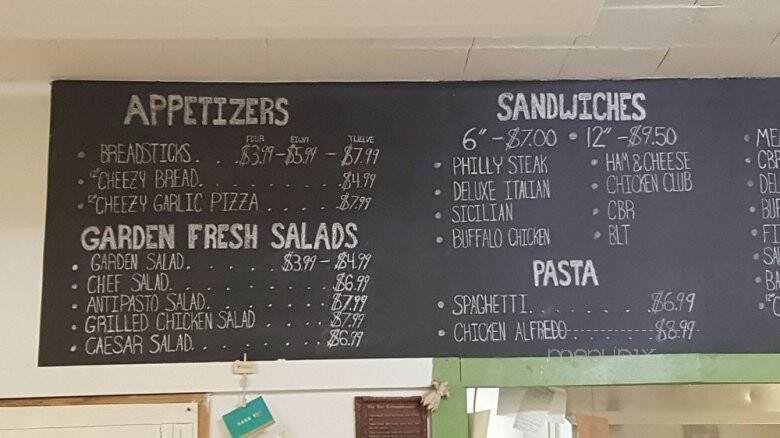 APPETIZERS
FOUR EIGHT TWELVE
• BREADSTICKS. . . . $3.99 - $5.99 - $7.99
• 12" CHEEZY BREAD. . . . . . . . $4.99
• 12" CHEEZY GARLIC PIZZA . . . . . . $7.99
GARDEN FRESH SALADS
• GARDEN SALAD. . . . . . $3.99 - $4.99
• CHEF SALAD. . . . . . . . . $6.99
• ANTIPASTO SALAD. . . . . . . $7.99
• GRILLED CHICKEN SALAD . . . . . $7.99
• CAESAR SALAD. . . . . . . . $6.99
SANDWICHES
6" - $7.00 • 12" - $9.50
• PHILLY STEAK
• DELUXE ITALIAN
• SICILIAN
• BUFFALO CHICKEN
• HAM & CHEESE
• CHICKEN CLUB
• CBR
• BLT
PASTA
• SPAGHETTI. . . . . . . . . $6.99
• CHICKEN ALFREDO - - - - - - - - $8.99
menupix